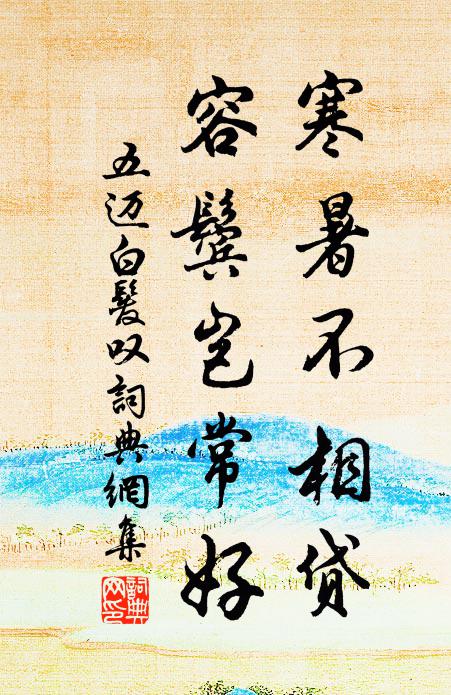 寒暑不相贷
容鬓岂常好
五迈白髮叹詞典網集
詞典网印